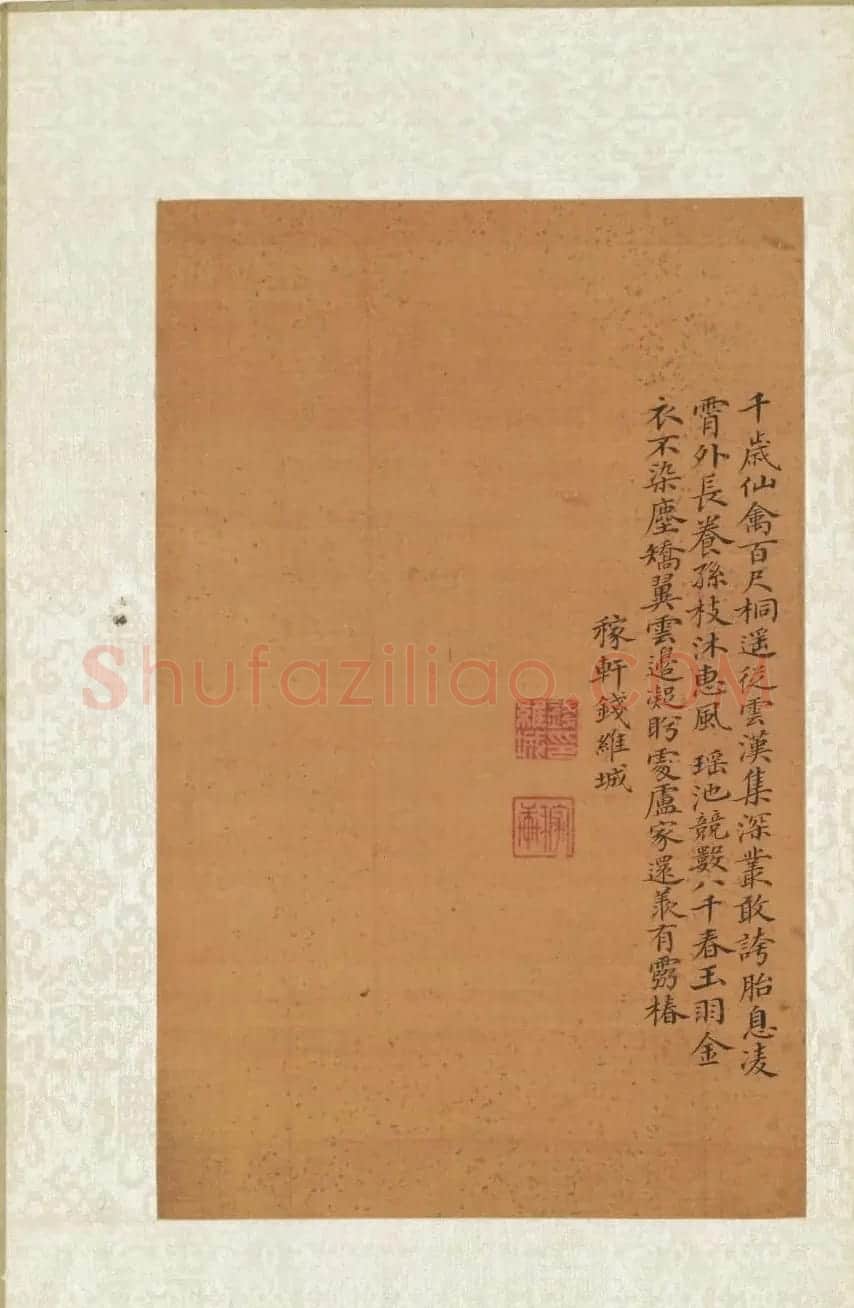 千歳仙禽百尺桐遥從雲漢集深叢敢誇胎息凌
霄外長養孫枝沐惠風瑶池競數八千春玉羽金
衣不染塵矯翼雲邉起盻處盧家還羨有靈椿
稼軒錢維城
Shufaziliao.COM